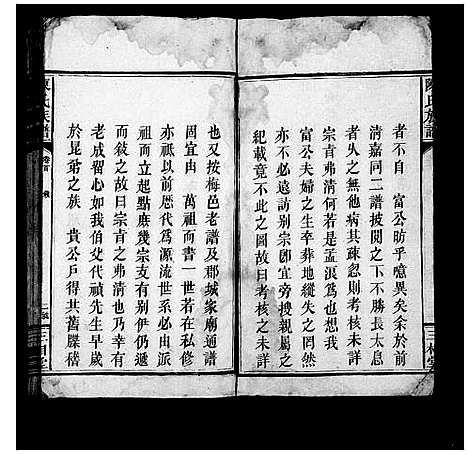 陳氏族譜
者不自　富公昉乎噫異矣余於前
清嘉同二譜披閱之下不勝長太息
者久之無他病其疎忽則考核未詳
宗旨弗清何若是孟浪爲也想我
富公夫婦之生卒葬地縱失之罔然
亦不必遠訪別宗卽宜旁搜親屬之
紀載竟不此之圖故曰考核之未詳
也又按梅邑老譜及郡城家廟通譜
周宜由　萬祖而書一世若在私修
亦祗以前歷代爲源流世系必由派
祖而立起點庶幾宗支有別伊仍遞
而敍之故曰宗旨之弗清也乃幸有
老成留心如我伯父代禎先生早歲
於昆弟之族　貴公戶得其舊牒稽
陳氏族譜
卷首
三相堂